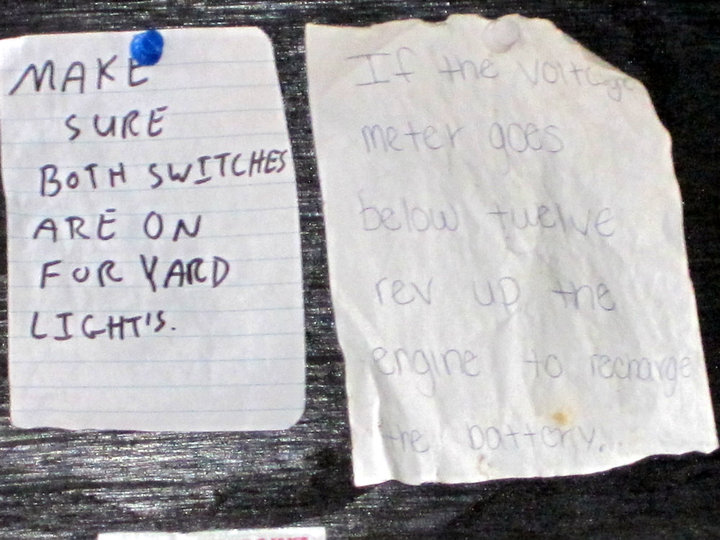 MAKE
SURE
BOTH SWITCHES
ARE ON
FOR YARD
LIGHT'S.
If the voltage
meter goes
below twelve
rev up the
engine to recharge
the battery...